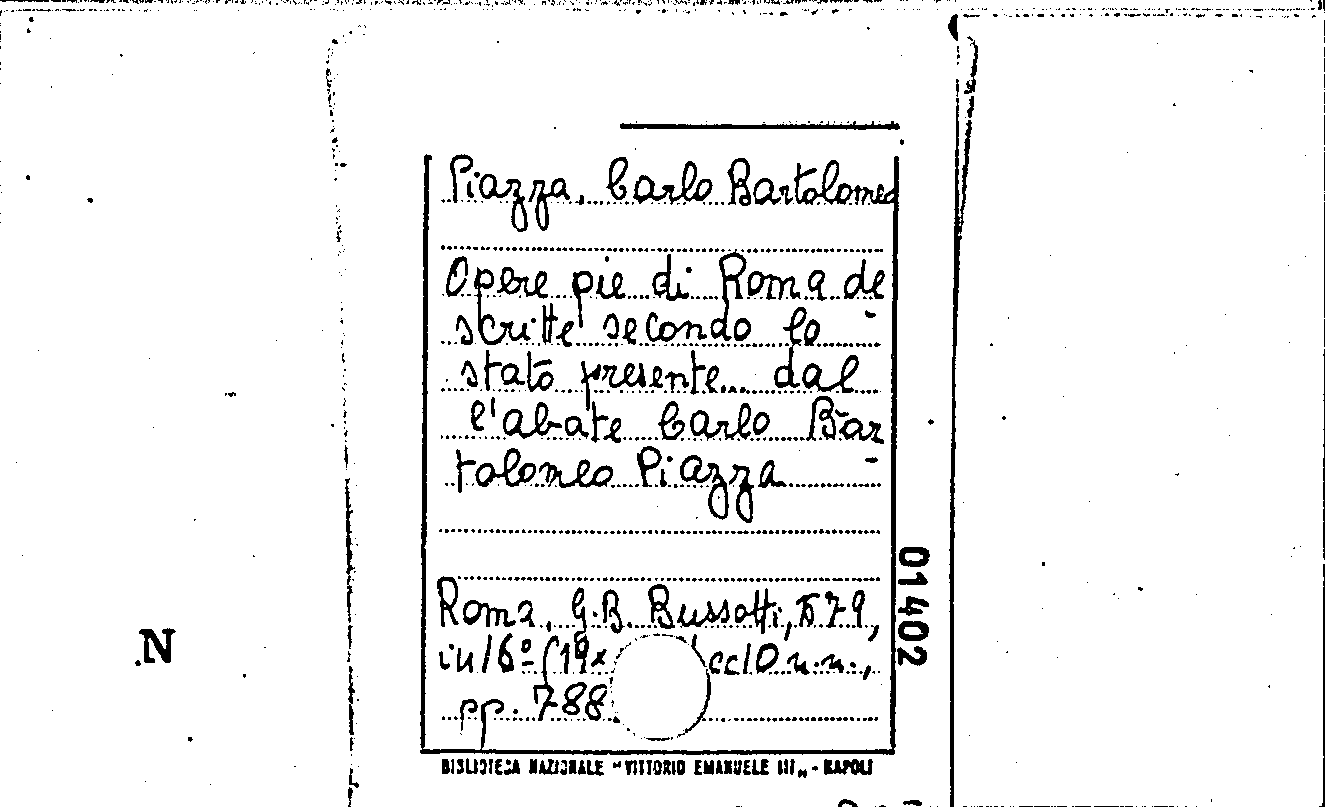 Piazza, Carlo Bartolomeo
Opere pie di Roma de-
scritte secondo lo
stato presente... dal
l'abate Carlo Bar-
tolomeo Piazza
Roma, G.B. Bussotti, 1679,
in 16º (19x cc 10 n.n.,
pp. 788
01402
.N
BIBLIOTECA NAZIONALE "VITTORIO EMANUELE III" - NAPOLI